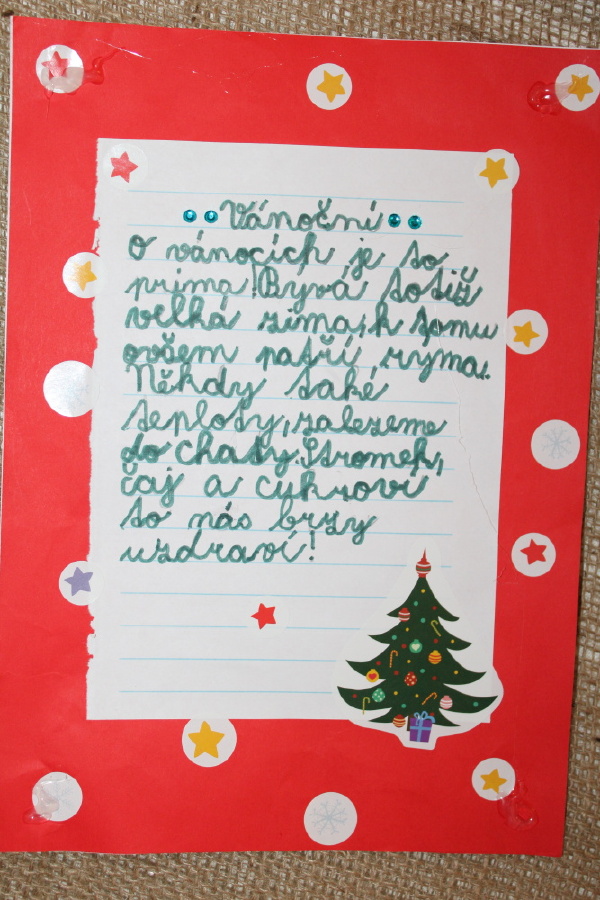 Vánoční
O vánocích je to
prima! Bývá totiž
velká zima, k tomu
ovšem patří, ryma.
Někdy také
teploty, zalezeme
do chaty. Stromek,
čaj a cukroví
to nás brzy
uzdraví!